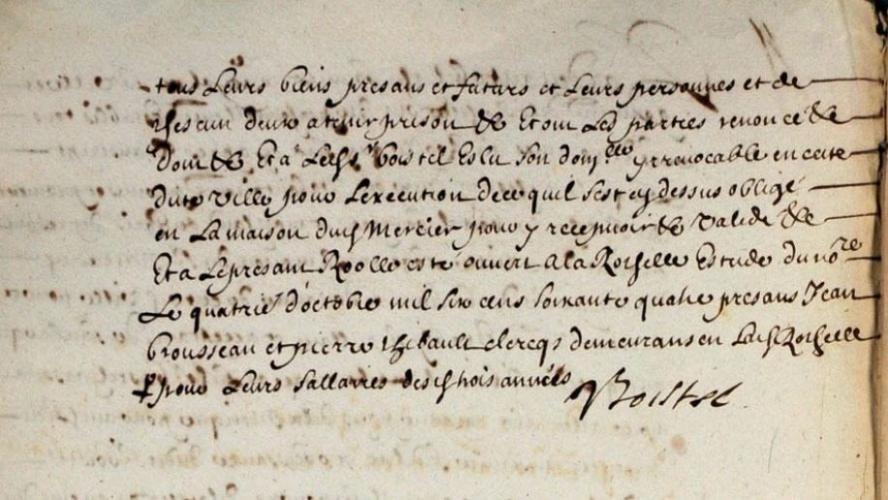 tous Leurs biens presans et futurs et Leurs personnes et de
chescun deux a tenir prison & Et ont Les parties renoncé &
Dont & Et a Led sr boistel Eslu son domlle yrrevocable en cette
dite ville pour Lexecution de ce quil sest cy dessus obligé
en La maison dud Mercier pour y recepvoir & valide &
Et a Le presant Roolle esté ouvert a la Rochelle Estude du nore
Le quatrie doctobre mil six cens soixante quatre presans Jean
brousseau et pierre thibault clercqs demeurans en Lad Rochelle
pour Leurs sallaires desd trois années
Boistel